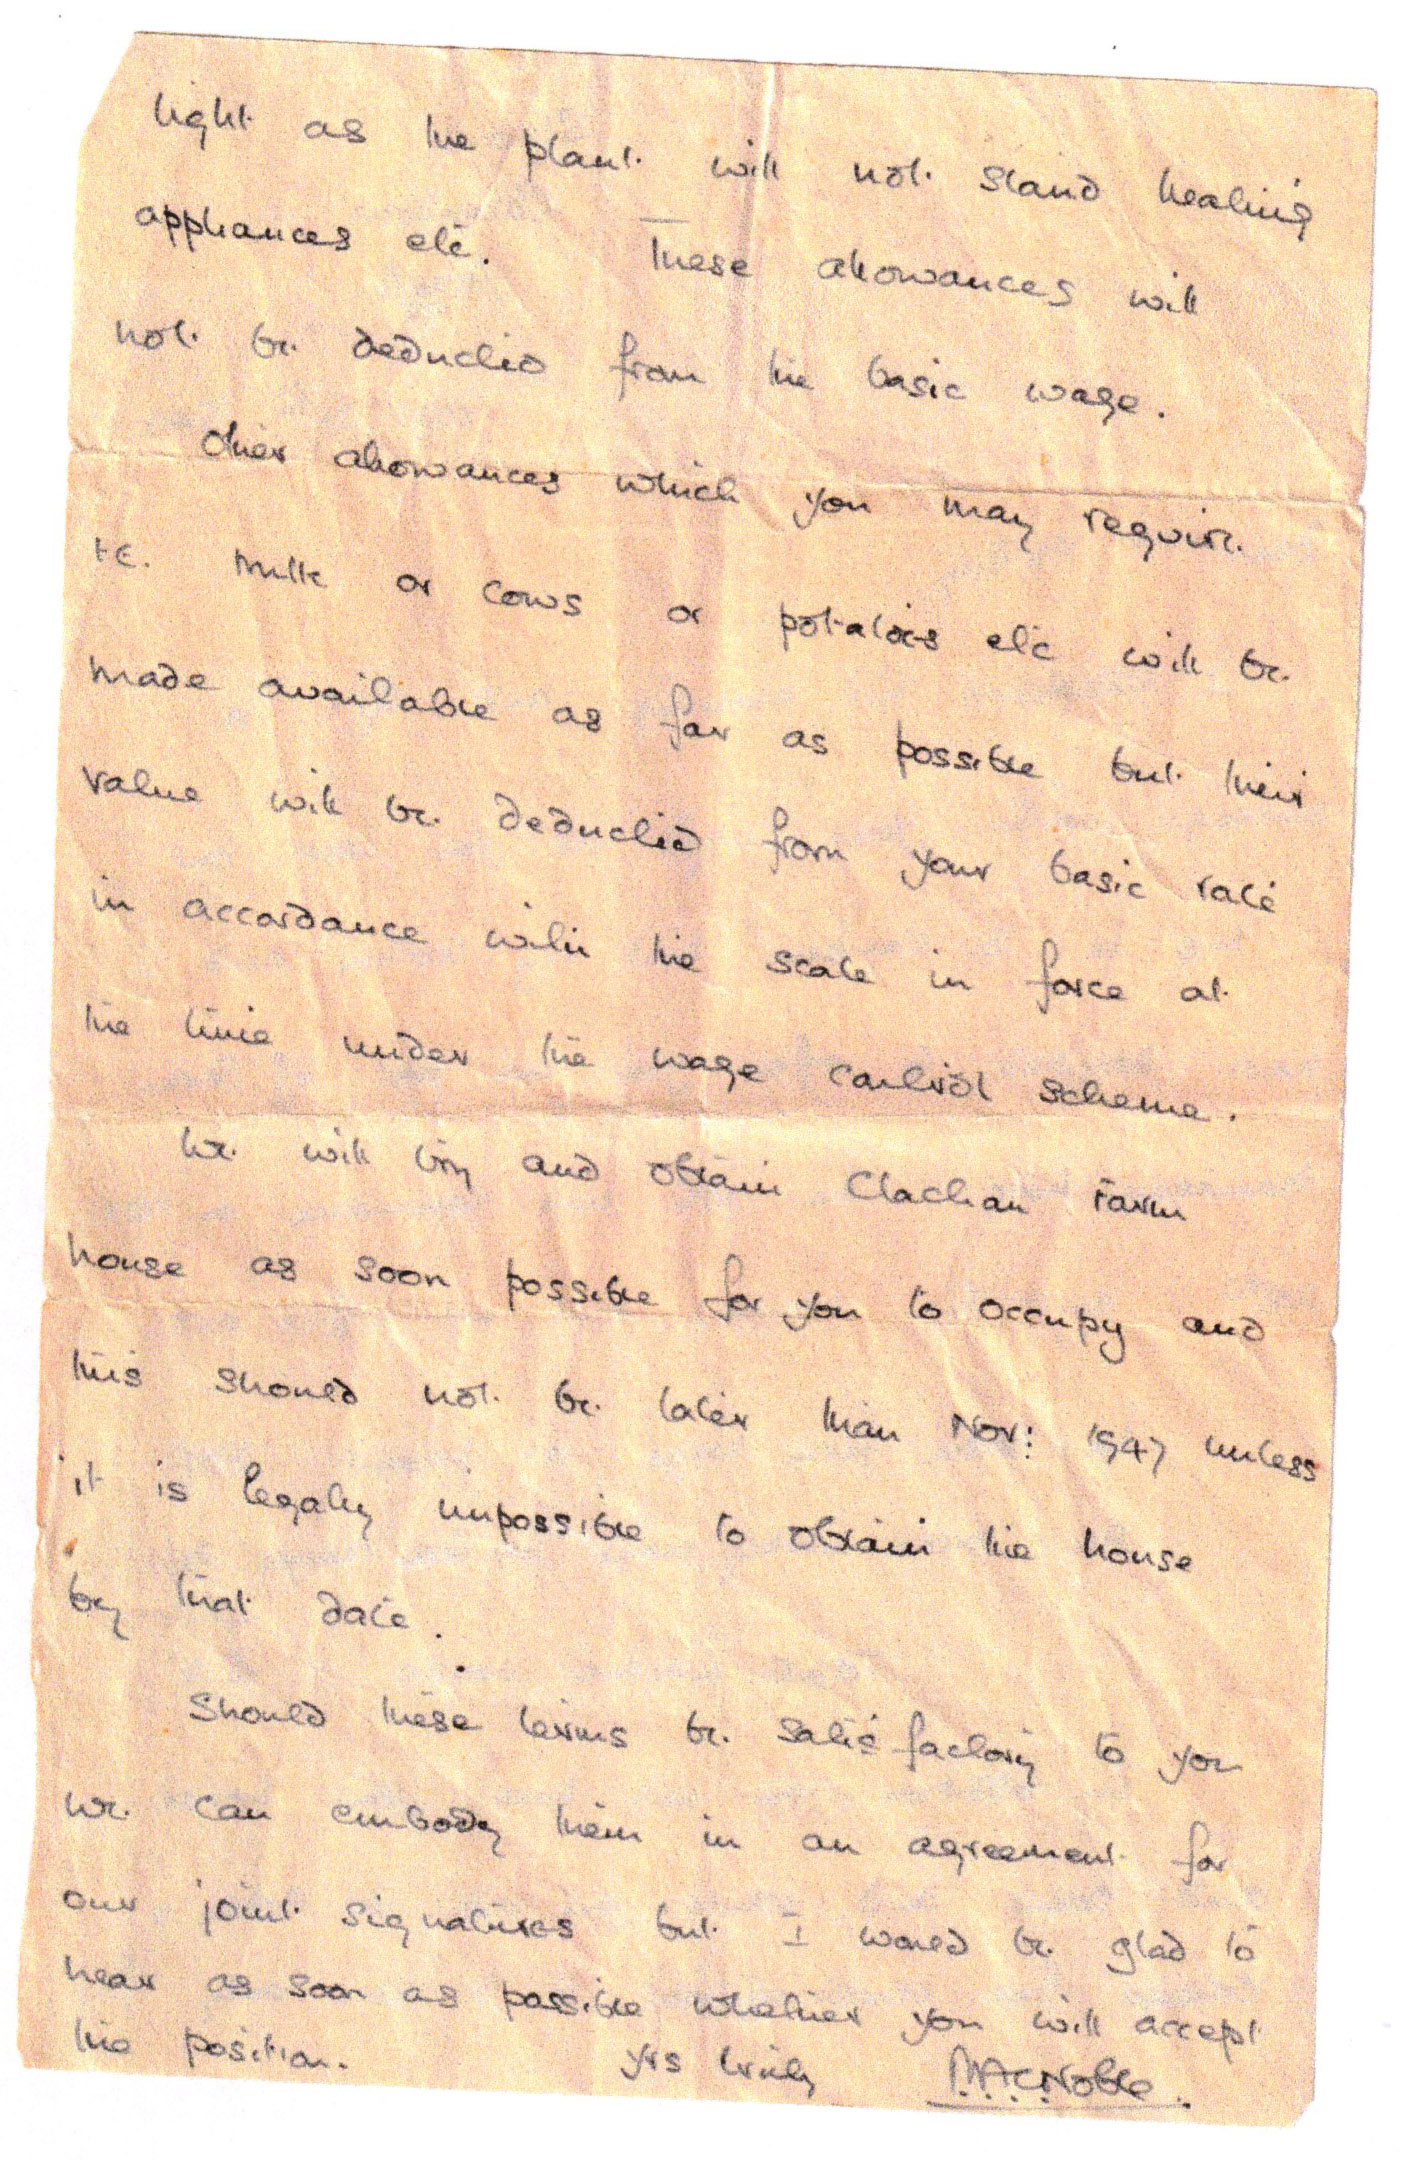 light as the plant will not stand heating
appliances etc. These allowances will
not be deducted from the basic wage.
Other allowances which you may require.
I.E. Milk or cows or potatoes etc will be
made available as far as possible but their
value will be deducted from your basic rate
in accordance with the scale in force at
the time under the wage control scheme.
We will try and obtain Clachan Farm
house as soon possible for you to occupy and
this should not be later than Nov: 1947 unless
it is legally impossible to obtain the house
by that date.
Should these terms be satisfactory to you
we can embody them in an agreement for
our joint signatures but I would be glad to
hear as soon as possible whether you will accept
the position. yrs truly Noble.